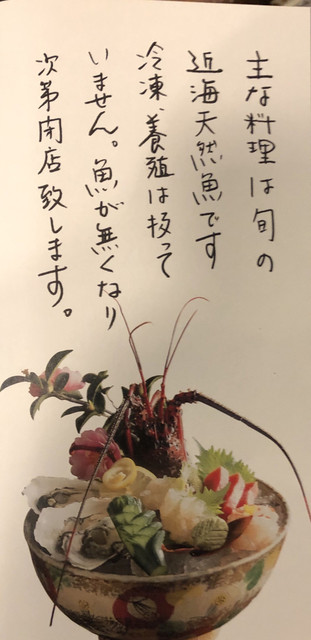 主な料理は旬の
近海天然魚です
冷凍、養殖は扱って
いません。魚が無くなり
次第閉店致します。